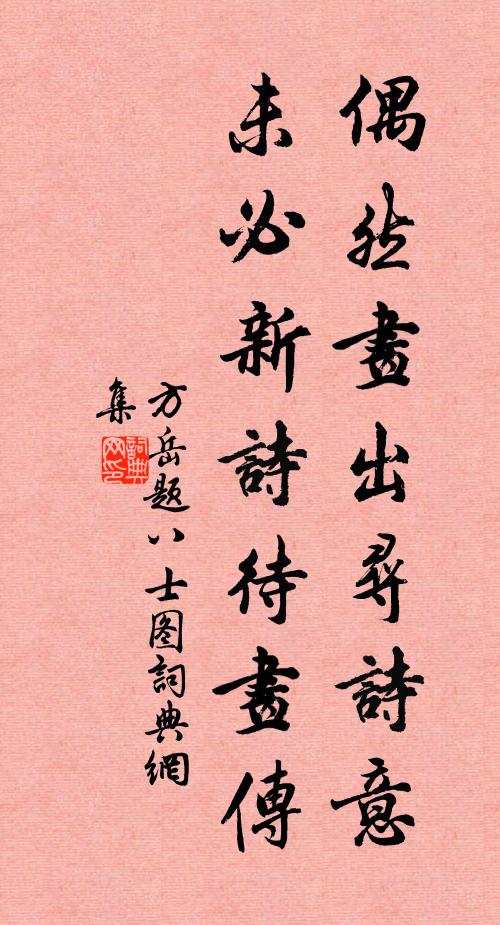 偶然畫出尋詩意
未必新詩待畫傳
方岳題八士图詞典網
集
詞典網印